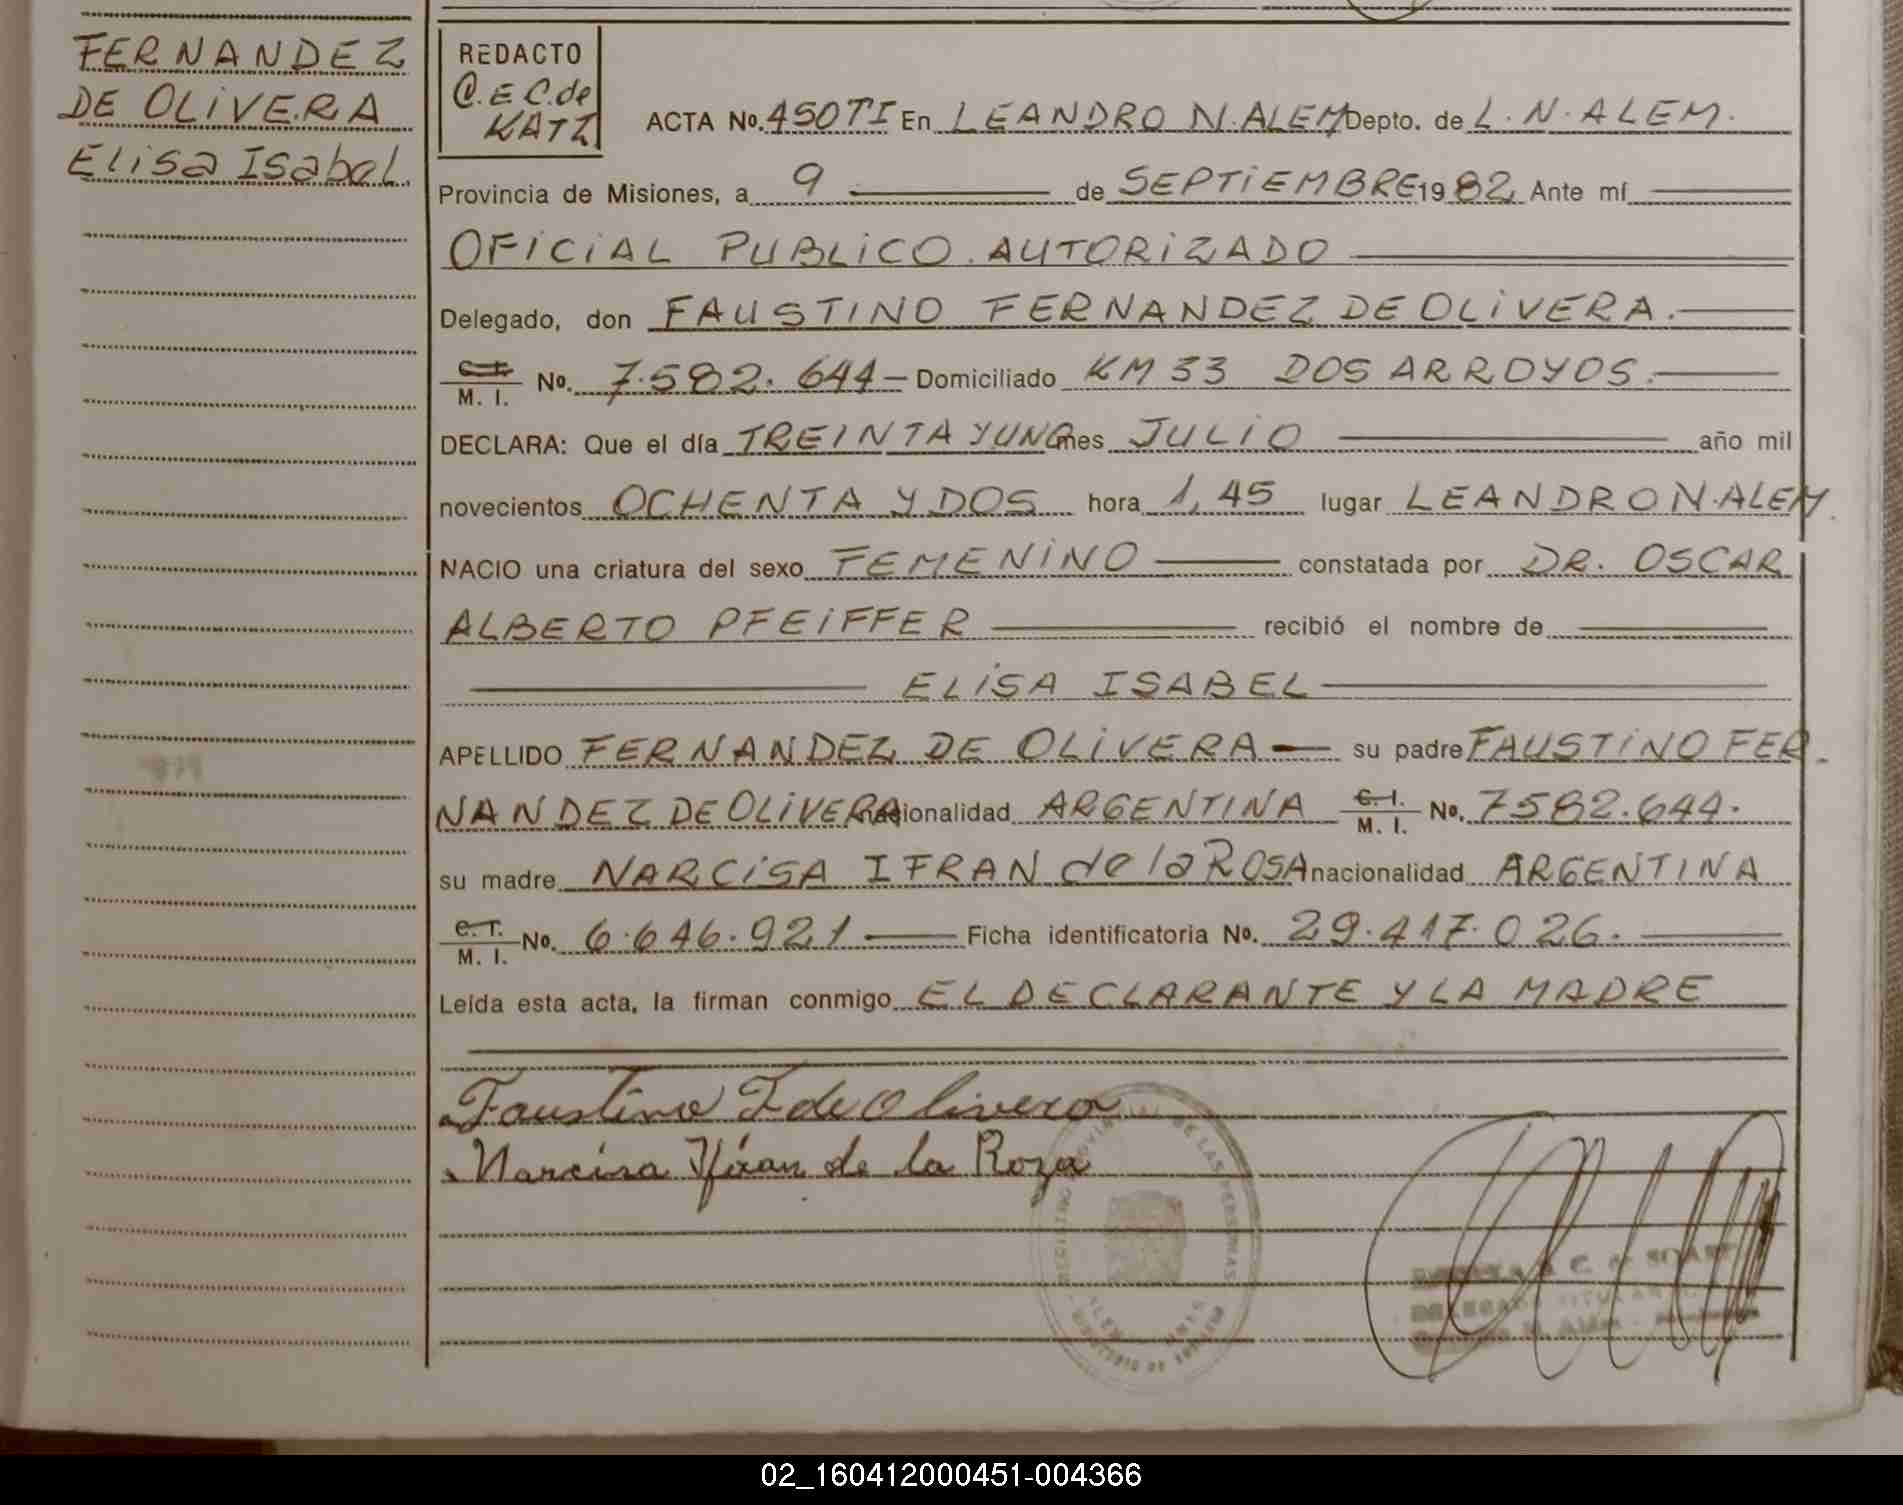 FERNANDEZ
DE OLIVERA
Elisa Isabel.
REDACTO
C.E.C. de
KATZ
ACTA No. 450TI En LEANDRO N. ALEM Depto. de L. N. ALEM.
Provincia de Misiones, a 9 de SEPTIEMBRE 1982 Ante mí
OFICIAL PUBLICO AUTORIZADO
Delegado, don FAUSTINO FERNANDEZ DE OLIVERA.
C. I.
M. I. No. 7.582.644 — Domiciliado KM 33 DOS ARROYOS.
DECLARA: Que el día TREINTA Y UNO mes JULIO año mil
novecientos OCHENTA Y DOS hora 1,45 lugar LEANDRO N. ALEM.
NACIO una criatura del sexo FEMENINO constatada por DR. OSCAR
ALBERTO PFEIFFER recibió el nombre de
ELISA ISABEL
APELLIDO FERNANDEZ DE OLIVERA — su padre FAUSTINO FER-
NANDEZ DE OLIVERA nacionalidad ARGENTINA C. I.
M. I. No. 7582.644.
su madre NARCISA IFRAN de la ROSA nacionalidad ARGENTINA
C. I.
M. I. No. 6.646.921 — Ficha identificatoria No. 29.417.026.
Leída esta acta, la firman conmigo EL DECLARANTE Y LA MADRE
Faustino F de Olivera
Narcisa Ifran de la Roza
DE LAS PERSONAS
02_160412000451-004366